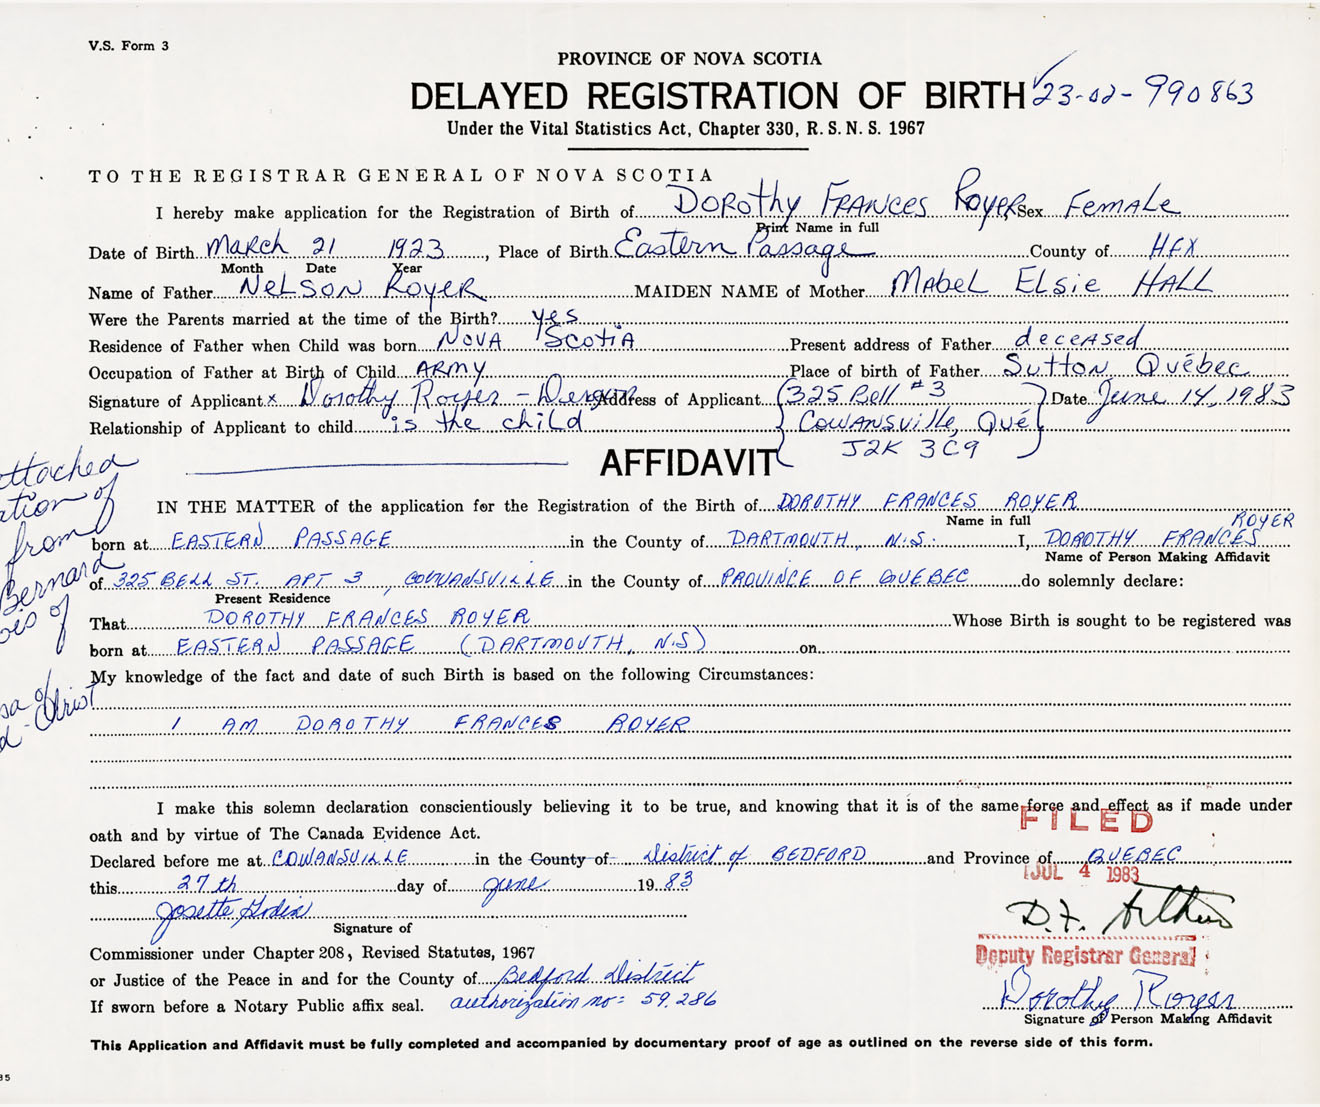 V.S. Form 3
PROVINCE OF NOVA SCOTIA
DELAYED REGISTRATION OF BIRTH 23-02-990863
Under the Vital Statistics Act, Chapter 330, R. S. N. S. 1967
TO THE REGISTRAR GENERAL OF NOVA SCOTIA
I hereby make application for the Registration of Birth of Dorothy Frances Royer Sex Female
Print Name in full
Date of Birth March 21 1923, Place of Birth Eastern Passage County of HFX
Month Date Year
Name of Father Nelson Royer MAIDEN NAME of Mother Mabel Elsie HALL
Were the Parents married at the time of the Birth? yes
Residence of Father when Child was born Nova Scotia Present address of Father deceased
Occupation of Father at Birth of Child ARMY Place of birth of Father Sutton Québec
Signature of Applicant x Dorothy Royer - Address of Applicant (325 Bell #3 Date June 14, 1983
Relationship of Applicant to child is the child Cowansville, Qué
J2K 3C9
AFFIDAVIT
attached
ation of
from
Bernard
of
IN THE MATTER of the application for the Registration of the Birth of DOROTHY FRANCES ROYER
Name in full ROYER
born at EASTERN PASSAGE in the County of DARTMOUTH, N.S. I, DOROTHY FRANCES
Name of Person Making Affidavit
of 325 BELL ST. APT 3, COWANSVILLE in the County of PROVINCE OF QUEBEC do solemnly declare:
Present Residence
That DOROTHY FRANCES ROYER Whose Birth is sought to be registered was
born at EASTERN PASSAGE (DARTMOUTH, N.S) on
My knowledge of the fact and date of such Birth is based on the following Circumstances:
I AM DOROTHY FRANCES ROYER
I make this solemn declaration conscientiously believing it to be true, and knowing that it is of the same force and effect as if made under
FILED
oath and by virtue of The Canada Evidence Act.
Declared before me at COWANSVILLE in the County of District of BEDFORD and Province of QUEBEC
JUL 4 1983
this 27th day of June 1983
Josette Godin
D.F. Arthur
Signature of
Commissioner under Chapter 208, Revised Statutes, 1967
Deputy Registrar General
or Justice of the Peace in and for the County of Bedford District
If sworn before a Notary Public affix seal. authorization no: 59.286
Dorothy Royer
Signature of Person Making Affidavit
This Application and Affidavit must be fully completed and accompanied by documentary proof of age as outlined on the reverse side of this form.